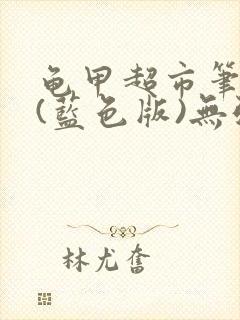 龟甲超市筆
(藍色版)無
林尤奮